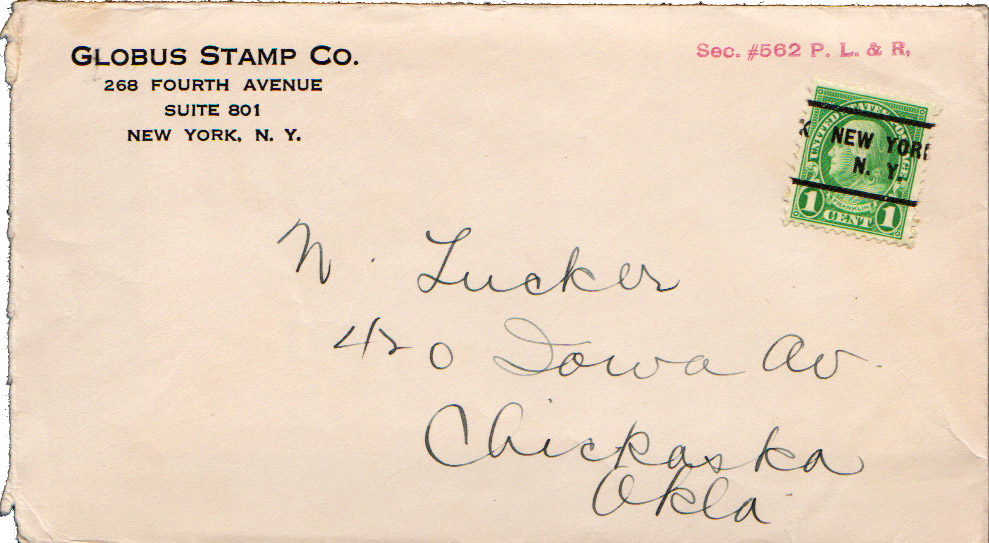 GLOBUS STAMP CO.
268 FOURTH AVENUE
SUITE 801
NEW YORK, N. Y.
Sec. #562 P. L. & R.
UNITED STATES POSTAGE
NEW YORK
N. Y.
FRANKLIN
1 CENT 1
N. Tucker
420 Iowa Av.
Chickaska
Okla